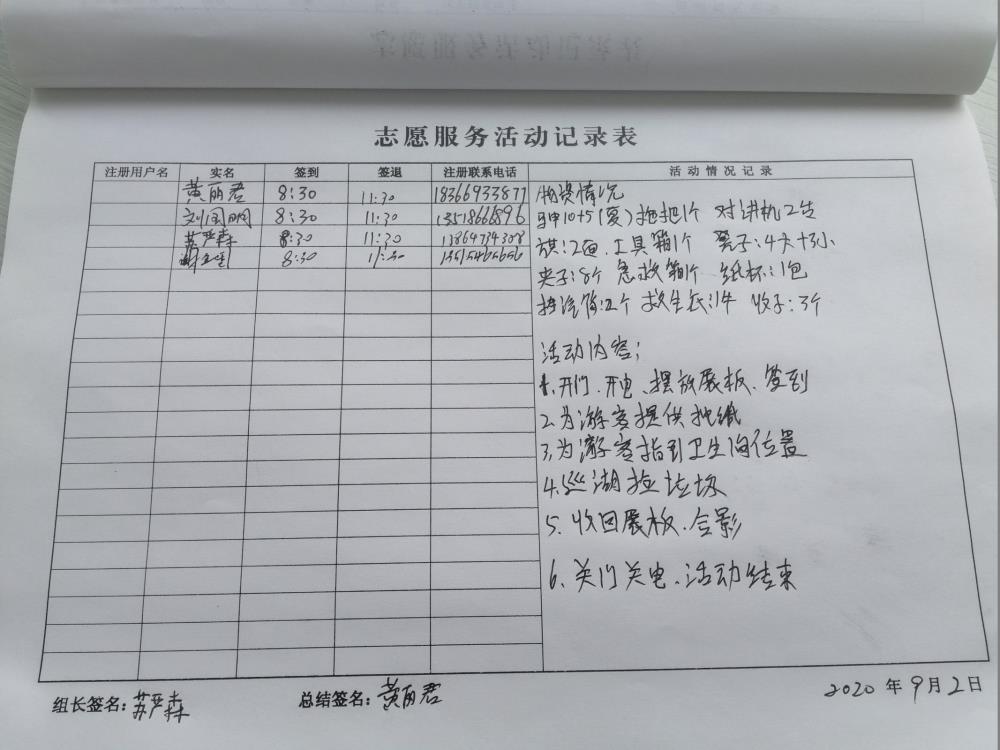 志愿服务活动记录表
注册用户名 实名 签到 签退 注册联系电话 活动情况记录
黄丽君 8:30 11:30 18366933877
刘国明 8:30 11:30 13518666896
苏严森 8:30 11:30 13864734308
8:30 11:30 13615466656
物资情况
马甲10+5(夏) 拖把1个 对讲机2台
旗:2面、工具箱1个 凳子:4大+3小
夹子:8个 急救箱1个 纸杯:1包
垃圾箱:2个 救生衣:1件 收子:3个
活动内容;
1.开门.开电、摆放展板、签到
2.为游客提供抽纸
3.为游客指到卫生间位置
4.巡湖捡垃圾
5.收回展板.合影
6、关门关电.活动结束
组长签名:苏严森 总结签名:黄丽君 2020年9月2日